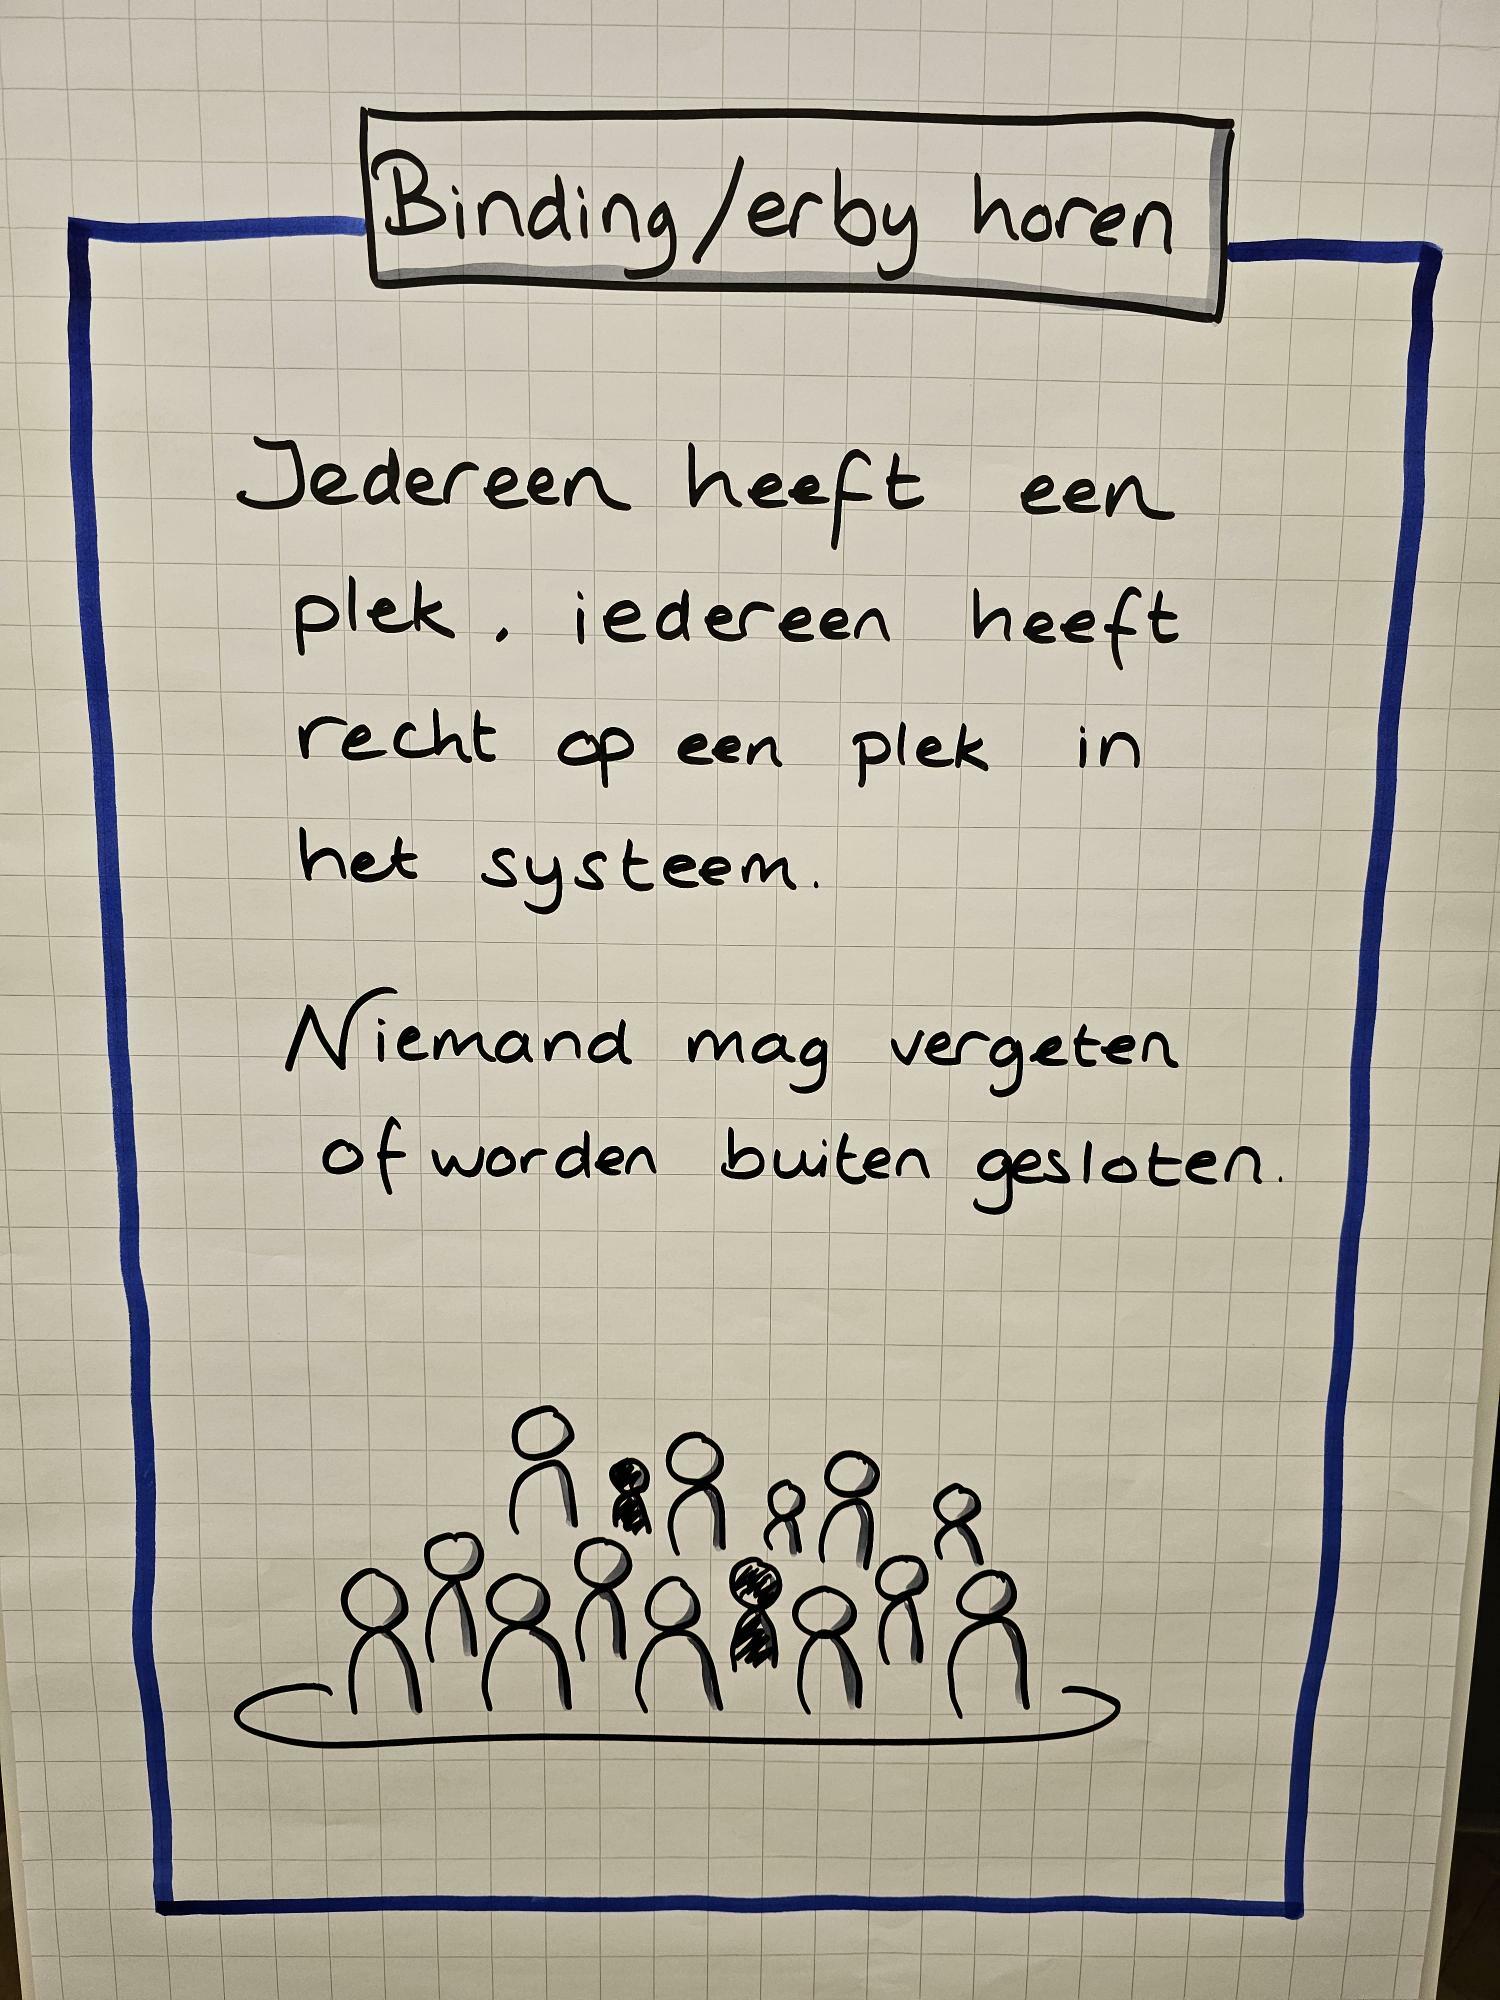 Binding/erby horen
Iedereen heeft een
plek. iedereen heeft
recht op een plek in
het systeem.
Niemand mag vergeten
of worden buiten gesloten.